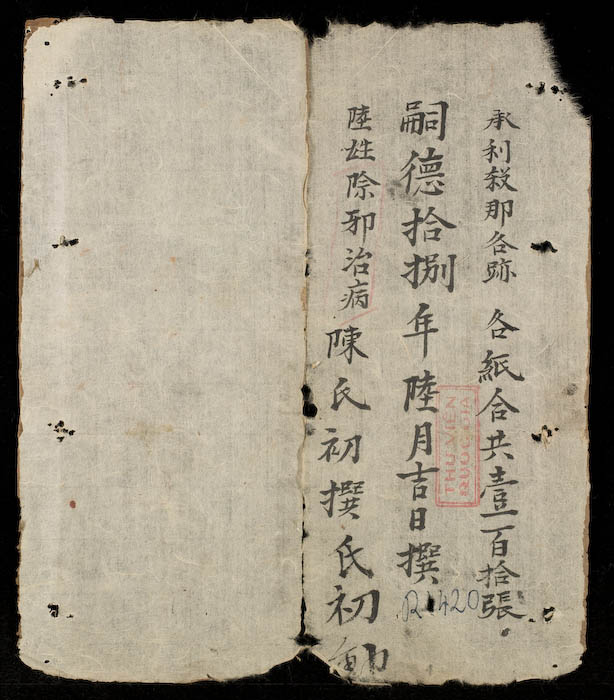 承利殺那各跡 各紙合共壹百拾張
嗣德拾捌年陸月吉日撰
陸姓除邪治病 陳氏初撰氏初
THƯ VIỆN
QUỐC GIA
R.1420